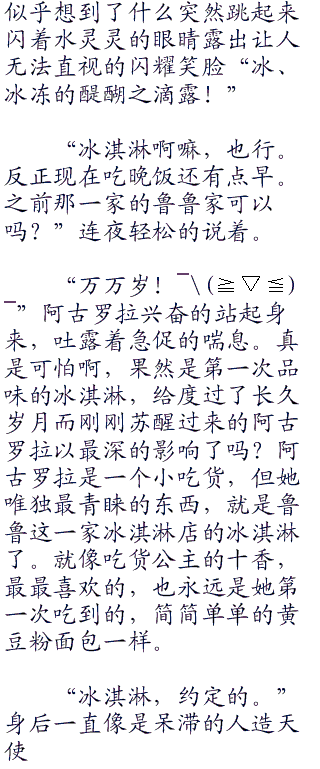 似乎想到了什么突然跳起来
闪着水灵灵的眼睛露出让人
无法直视的闪耀笑脸“冰、
冰冻的醍醐之滴露！”
“冰淇淋啊嘛，也行。
反正现在吃晚饭还有点早。
之前那一家的鲁鲁家可以
吗？”连夜轻松的说着。
“万万岁！￣\(≧▽≦)
￣”阿古罗拉兴奋的站起身
来，吐露着急促的喘息。真
是可怕啊，果然是第一次品
味的冰淇淋，给度过了长久
岁月而刚刚苏醒过来的阿古
罗拉以最深的影响了吗？阿
古罗拉是一个小吃货，但她
唯独最青睐的东西，就是鲁
鲁这一家冰淇淋店的冰淇淋
了。就像吃货公主的十香，
最最喜欢的，也永远是她第
一次吃到的，简简单单的黄
豆粉面包一样。
“冰淇淋，约定的。”
身后一直像是呆滞的人造天
使